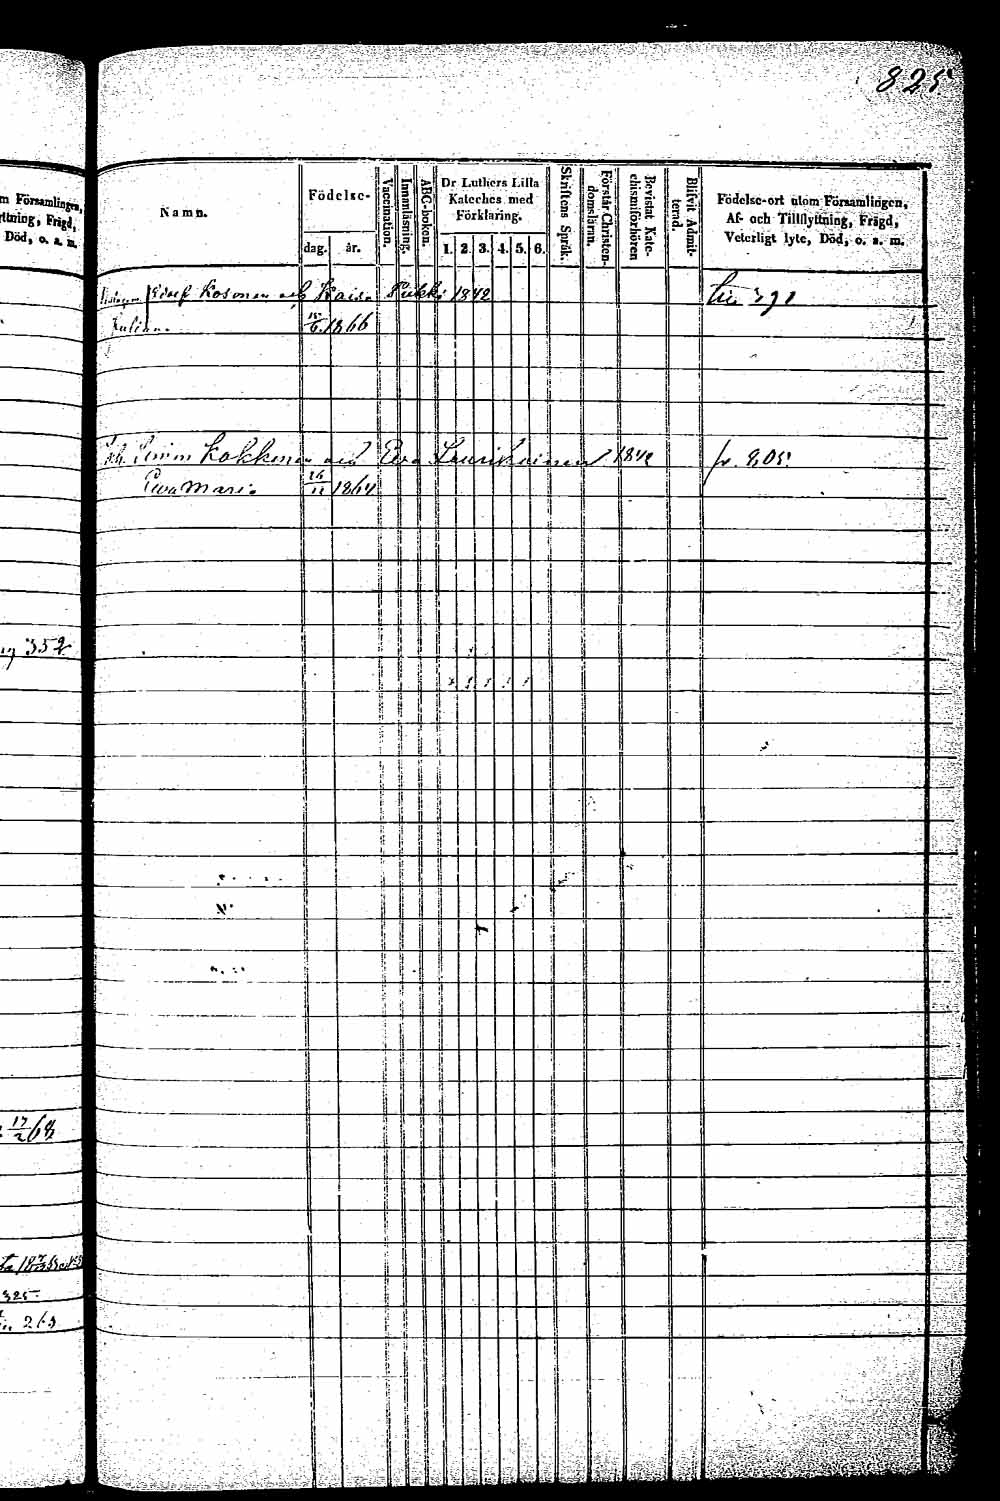 825
m Församlingen,
yttning, Frägd,
Död, o. a. m.
Namn.
Födelse-
dag. år.
Vaccination.
Innanläsning.
ABC-boken.
Dr Luthers Lilla
Kateches med
Förklaring.
1. 2. 3. 4. 5. 6.
Skriftens Språk.
Förstår Christen-
domsläran.
Bevistat Kate-
chismiförhören
Blifvit Admit-
terad.
Födelse-ort utom Församlingen,
Af- och Tillflyttning, Frägd,
Veterligt lyte, Död, o. a. m.
Kosonen och Kaisa Pukki 1842
1866
Simon Kokkonen Ewa Laurikainen 1842 fr. 805
Ewa Maria 1864
352
17/2 68
325
263